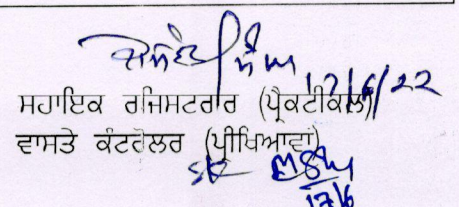 17/6/22
ਸਹਾਇਕ ਰਜਿਸਟਰਾਰ (ਪ੍ਰੈਕਟੀਕਲ)
ਵਾਸਤੇ ਕੰਟਰੋਲਰ (ਪ੍ਰੀਖਿਆਵਾਂ)
17/6